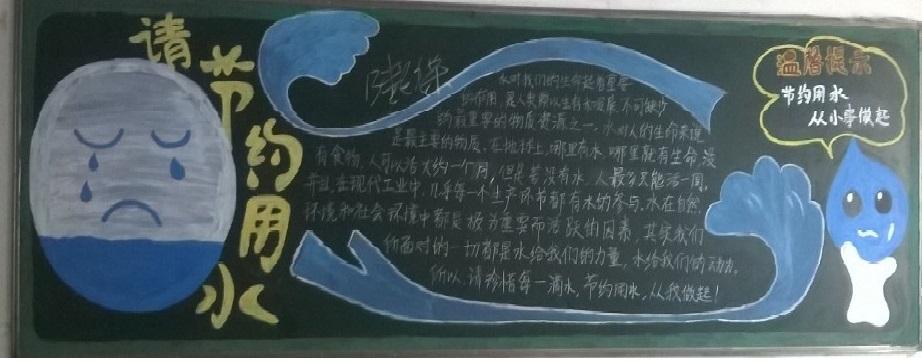 请节约用水
水对我们的生命起着重要
的作用,是人类赖以生存和发展不可缺少
的最重要的物质资源之一。水对人的生命来说
是最主要的物质。在地球上,哪里有水,哪里就有生命。没
有食物,人可以活大约一个月,但是若没有水,人最多只能活一周。
并且,在现代工业中,几乎每一个生产环节都有水的参与。水在自然
环境和社会环境中都是极为重要而活跃的因素,其实我们
所面对的一切都是水给我们的力量,水给我们的动力。
所以,请珍惜每一滴水,节约用水,从我做起!
温馨提示
节约用水
从小事做起